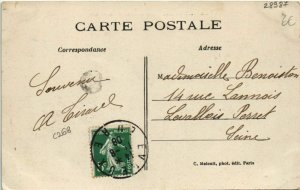 28987
CARTE POSTALE
Correspondance
Adresse
Souvenir
A
C268
Mademoiselle Benoiston
14 rue Lannois
Levallois Perret
Seine
C. Malcuit, phot. édit. Paris